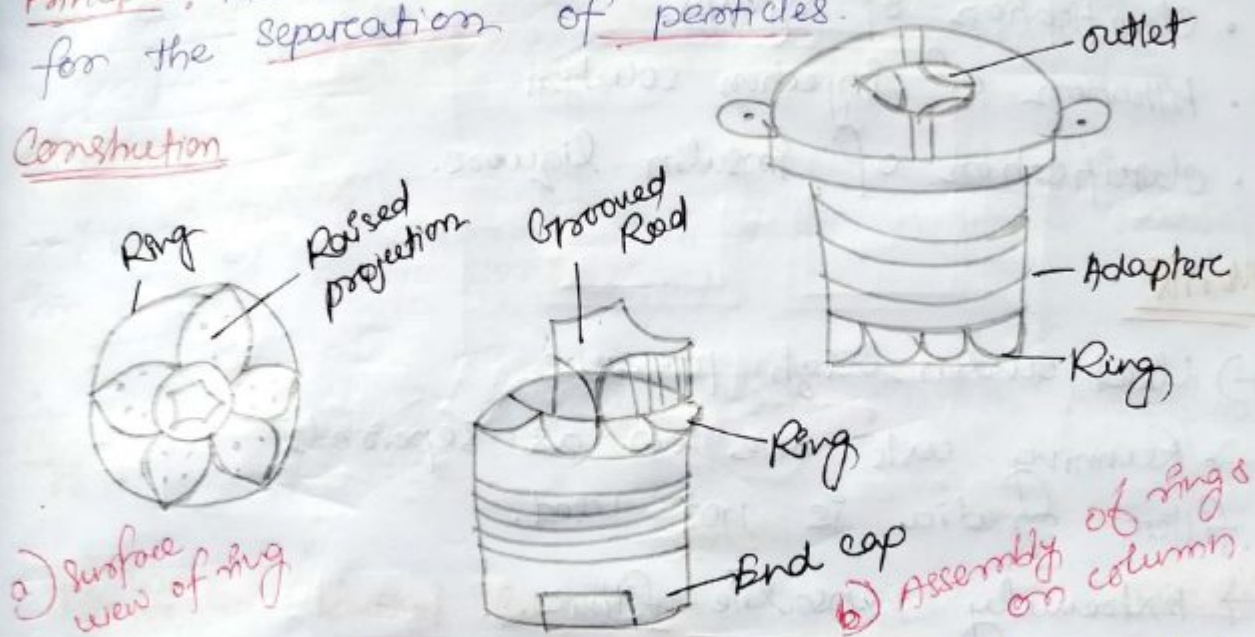 for the separcation of perticles.
Construction
Ring
Raised
projection
Grooved
Rod
outlet
Adapterc
Ring
Ring
End cap
a) Surface
view of ring
b) Assembly of rings
on column